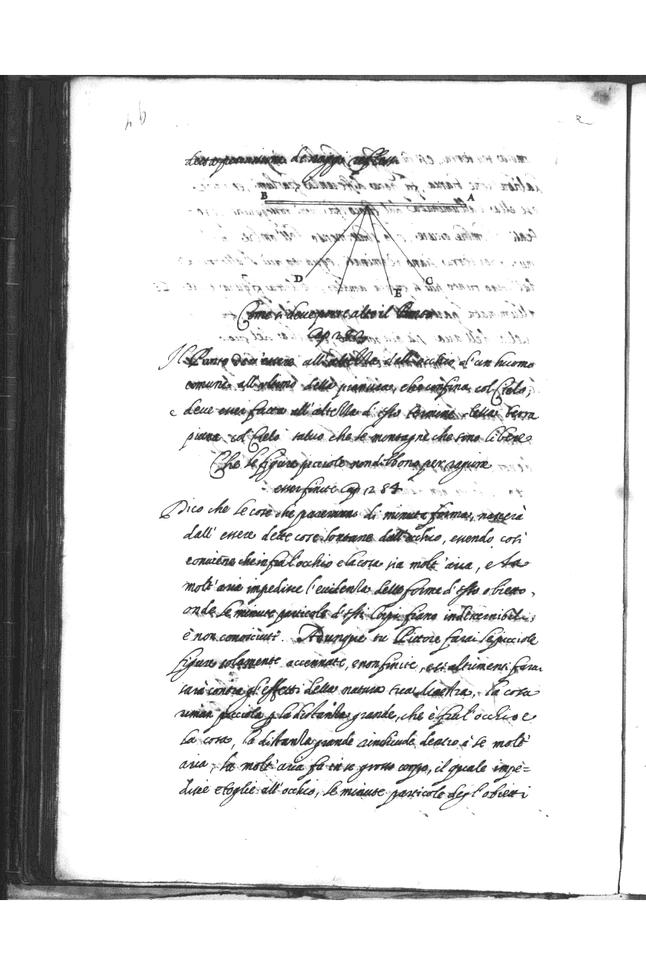 B A
D E C
Come si deve porre alto il Punto
Cap 283
Il Punto de essere all' altezza dell' occhio d' un huomo
comune all' ultimo della pianura, che confina col Cielo,
deve esser fatta all' altezza d' esso termine della terra
piana col Cielo salvo che le montagne che sono libere
Che le figure picciole non debbono per ragione
esser finite Cap 284
Dico che le cose che pareranno di minuta forma, nascerà
dall' essere dette cose lontane dall' occhio, essendo così
conviene che infra l' occhio e la cosa sia molt' aria, e la
molt' aria impedisce l' evidenza delle forme d' essi obietti,
onde le minute particole d' essi corpi fiano indiscernibili,
e non conosciute. Adunque tu Pittore farai le picciole
figure solamente accennate, e non finite, e se altrimenti farai
sarà contra gl' effetti della natura tua Maestra, la cosa
riman picciola p la distanza grande, che è fra l' occhio e
la cosa, la distanza grande rinchiude dentro à se molt'
aria, la molt' aria fa in se grosso corpo, il quale impe=
disce e toglie all' occhio, le minute particole degl' obietti